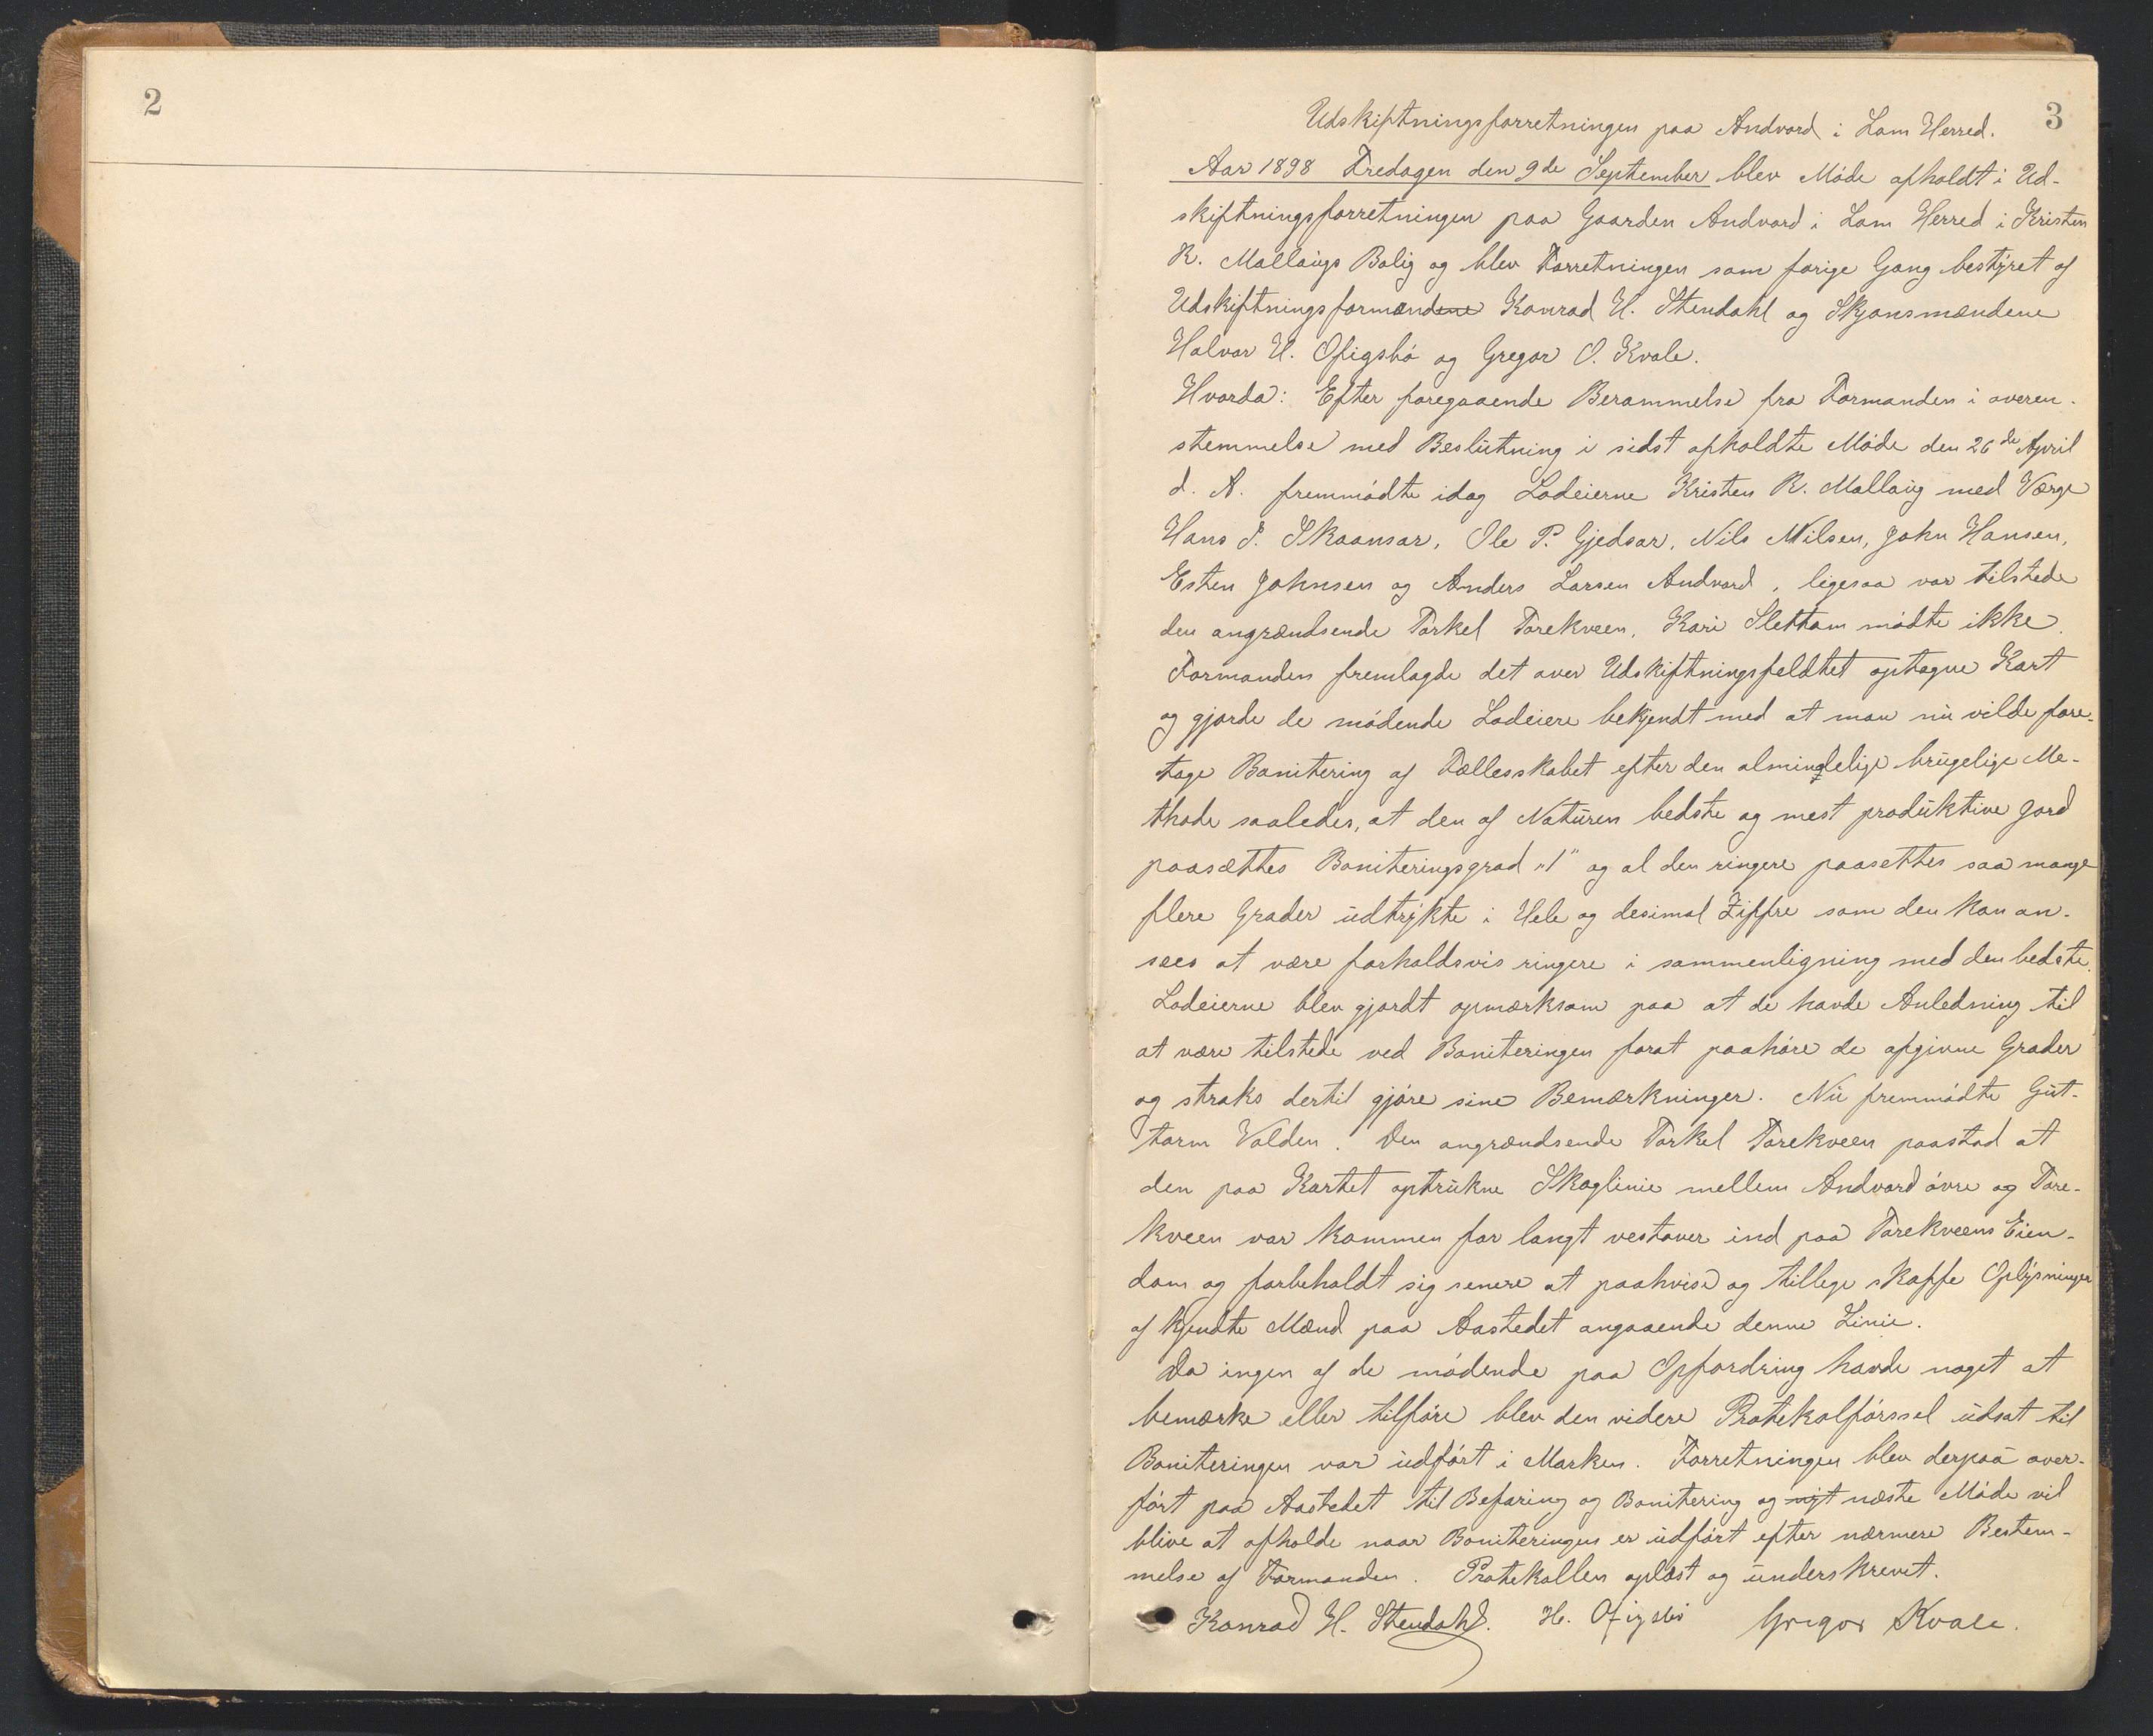 2
3
Udskiftningsforretningen paa Andvord i Lom Herred.
Aar 1898 Fredagen den 9de September blev Möde afholdt i Ud-
skiftningsforretningen paa Gaarden Andvord i Lom Herred i Kristen
R. Mollaugs Bolig og blev Forretningen som forige Gang bestyret af
Udskiftningsformandene Konrad H. Stendahl og Skjønsmændene
Halvor H. Ofigsbö og Gregor O. Kvale.
Hvorda: Efter foregaaende Berammelse fra Formanden i overen-
stemmelse med Beslutning i sidst afholdte Möde den 26de April
d. A. fremmödte idag Lodeierne Kristen R. Mollaug med Værge
Hans P. Skaansar, Ole P. Gjedsar, Nils Nilsen, John Hansen,
Esten Johnsen og Anders Larsen Andvord, ligesaa var tilstede
den angrændsende Torkel Torekveen, Kari Slettom mödte ikke.
Formanden fremlagde det over Udskiftningsfeldtet optagne Kart
og gjorde de mödende Lodeiere bekjendt med at man nu vilde fore-
tage Bonitering af Fællesskabet efter den almindelige brugelige Me-
thode saaledes, at den af Naturen bedste og mest produktive Jord
paasættes Boniteringsgrad „1" og al den ringere paasettes saa mange
flere Grader udtrykte i Hele og desimal Ziffre som den kan an-
sees at være forholdsvis ringere i sammenligning med den bedste.
Lodeierne blev gjordt opmærksom paa at de havde Anledning til
at være tilstede ved Boniteringen forat paahöre de afgivne Grader
og straks dertil gjöre sine Bemærkninger. Nu fremmödte Gut-
torm Volden. Den angrændsende Torkel Torekveen paastod at
den paa Kartet optrukne Skoglinie mellem Andvord övre og Tore-
kveen var kommen for langt vestover ind paa Torekveens Eien-
dom og forbeholdt sig senere at paahvise og tillige skaffe Oplysninger
af kjendte Mænd paa Aastedet angaaende denne Linie.
Da ingen af de mödende paa Opfordring havde noget at
bemærke eller tilföre blev den videre Protekolförssel udsat til
Boniteringen var udfört i Marken. Forretningen blev derpaa over-
fört paa Aastedet til Befaring og Bonitering og nyt næste Möde vil
blive at afholde naar Boniteringen er udfört efter nærmere Bestem-
melse af Formanden. Protekollen oplæst og underskrevet.
Konrad H. Stendahl. H. Ofigsbö Gregor Kvale.